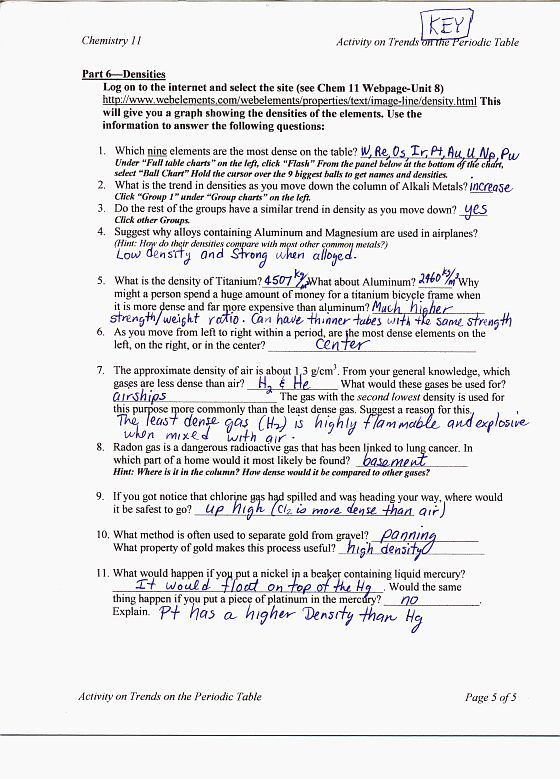 KEY
Chemistry 11 Activity on Trends on the Periodic Table
Part 6—Densities
Log on to the internet and select the site (see Chem 11 Webpage-Unit 8)
http://www.webelements.com/webelements/properties/text/image-line/density.html This
will give you a graph showing the densities of the elements. Use the
information to answer the following questions:
1. Which nine elements are the most dense on the table? W, Re, Os, Ir, Pt, Au, U, Np, Pu
Under "Full table charts" on the left, click "Flash" From the panel below at the bottom of the chart,
select "Ball Chart" Hold the cursor over the 9 biggest balls to get names and densities.
2. What is the trend in densities as you move down the column of Alkali Metals? increase
Click "Group 1" under "Group charts" on the left.
3. Do the rest of the groups have a similar trend in density as you move down? yes
Click other Groups.
4. Suggest why alloys containing Aluminum and Magnesium are used in airplanes?
(Hint: How do their densities compare with most other common metals?)
Low density and strong when alloyed.
5. What is the density of Titanium? 4507 kg/m³ What about Aluminum? 2700 kg/m³ Why
might a person spend a huge amount of money for a titanium bicycle frame when
it is more dense and far more expensive than aluminum? Much higher
strength/weight ratio. Can have thinner tubes with the same strength
6. As you move from left to right within a period, are the most dense elements on the
left, on the right, or in the center? Center
7. The approximate density of air is about 1.3 g/cm³. From your general knowledge, which
gases are less dense than air? H₂ & He What would these gases be used for?
airships The gas with the second lowest density is used for
this purpose more commonly than the least dense gas. Suggest a reason for this.
The least dense gas (H₂) is highly flammable and explosive
when mixed with air.
8. Radon gas is a dangerous radioactive gas that has been linked to lung cancer. In
which part of a home would it most likely be found? basement
Hint: Where is it in the column? How dense would it be compared to other gases?
9. If you got notice that chlorine gas had spilled and was heading your way, where would
it be safest to go? up high (Cl₂ is more dense than air)
10. What method is often used to separate gold from gravel? panning
What property of gold makes this process useful? high density
11. What would happen if you put a nickel in a beaker containing liquid mercury?
It would float on top of the Hg. Would the same
thing happen if you put a piece of platinum in the mercury? no.
Explain. Pt has a higher Density than Hg
Activity on Trends on the Periodic Table Page 5 of 5